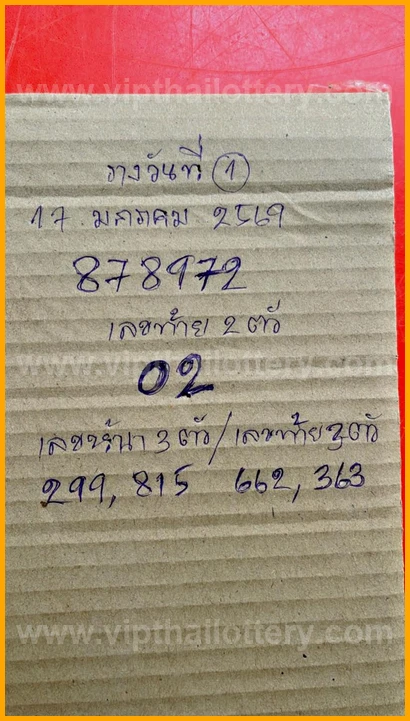 www.vipthailottery.com
รางวันที่ 1
17 มกราคม 2569
878972
เลขท้าย 2 ตัว
www.vipthailottery.com
02
เลขหน้า 3 ตัว/เลขท้าย 3 ตัว
299, 815 662, 363
www.vipthailottery.com